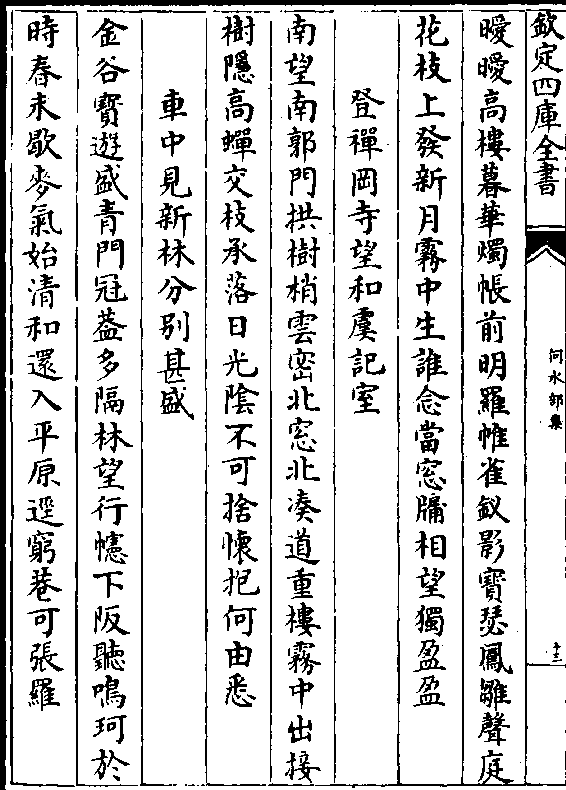 欽定四庫全書
何水部集
十三
曖曖高樓暮華燭帳前明羅帷雀釵影寶瑟鳳雛聲庭
花枝上發新月霧中生誰念當窓牖相望獨盈盈
登禪岡寺望和虞記室
南望南郭門拱樹梢雲密北窓北凑道重樓霧中出接
樹隱高蟬交枝承落日光陰不可捨懷抱何由悉
車中見新林分别甚盛
金谷賓遊盛青門冠葢多隔林望行幰下阪聽鳴珂於
時春未歇麥氣始清和還入平原逕窮巷可張羅